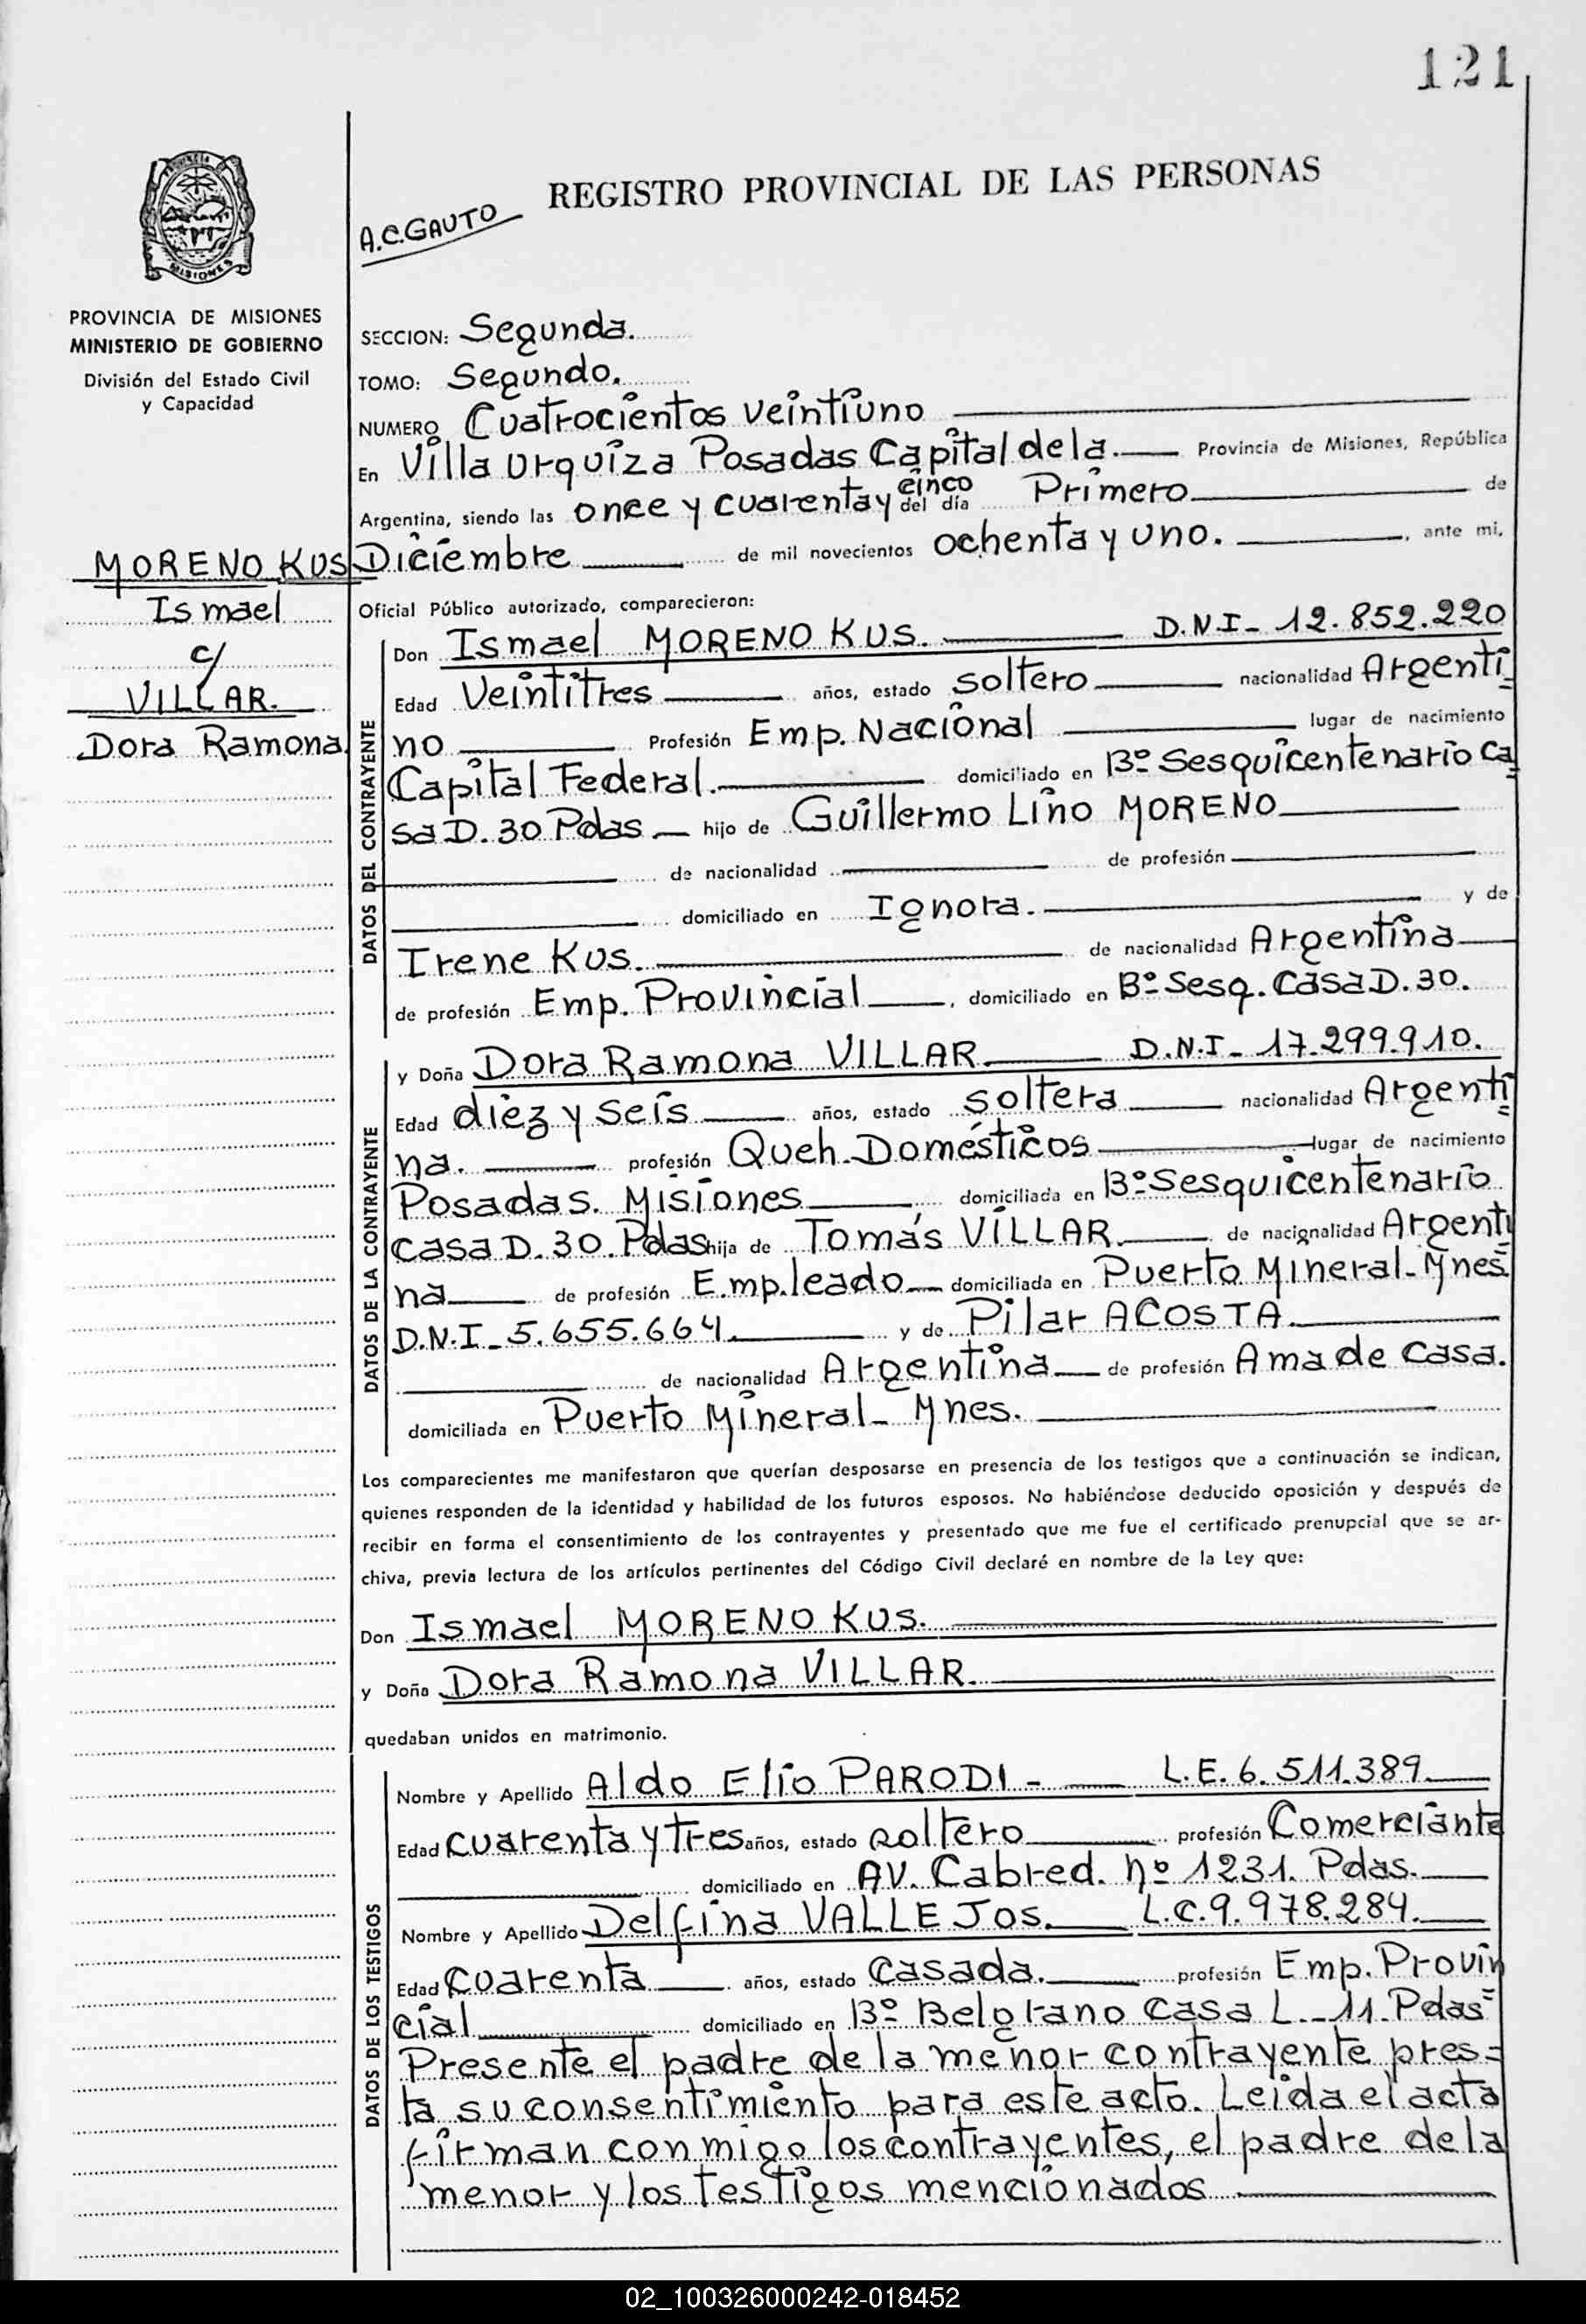 121
REGISTRO PROVINCIAL DE LAS PERSONAS
A.C.GAUTO
PROVINCIA DE MISIONES
MINISTERIO DE GOBIERNO
División del Estado Civil
y Capacidad
SECCION: Segunda.
TOMO: Segundo.
NUMERO Cuatrocientos veintiuno
En Villa Urquiza Posadas Capital de la. Provincia de Misiones, República
Argentina, siendo las once y cuarenta y cinco del día Primero de
Diciembre de mil novecientos ochenta y uno. , ante mi,
MORENO KUS
Ismael
c/
VILLAR.
Dora Ramona
Oficial Público autorizado, comparecieron:
DATOS DEL CONTRAYENTE
Don Ismael MORENO KUS. D.N.I- 12.852.220
Edad Veintitres años, estado soltero nacionalidad Argenti
no Profesión Emp. Nacional lugar de nacimiento
Capital Federal. domiciliado en Bº Sesquicentenario Ca
sa D. 30 Pdas hijo de Guillermo Lino MORENO
de nacionalidad de profesión
domiciliado en Ignora. y de
Irene Kus. de nacionalidad Argentina
de profesión Emp. Provincial , domiciliado en Bº Sesq. Casa D. 30.
DATOS DE LA CONTRAYENTE
y Doña Dora Ramona VILLAR D.N.I- 17.299.910.
Edad diez y seis años, estado soltera nacionalidad Argenti
na. profesión Queh. Domésticos lugar de nacimiento
Posadas. Misiones , domiciliada en Bº Sesquicentenario
casa D. 30. Pdas hija de Tomás VILLAR de nacionalidad Argenti
na de profesión Empleado domiciliada en Puerto Mineral- Mnes.
D.N.I- 5.655.664. y de Pilar ACOSTA.
de nacionalidad Argentina de profesión Ama de Casa.
domiciliada en Puerto Mineral- Mnes.
Los comparecientes me manifestaron que querían desposarse en presencia de los testigos que a continuación se indican,
quienes responden de la identidad y habilidad de los futuros esposos. No habiéndose deducido oposición y después de
recibir en forma el consentimiento de los contrayentes y presentado que me fue el certificado prenupcial que se ar-
chiva, previa lectura de los artículos pertinentes del Código Civil declaré en nombre de la Ley que:
Don Ismael MORENO KUS.
y Doña Dora Ramona VILLAR.
quedaban unidos en matrimonio.
DATOS DE LOS TESTIGOS
Nombre y Apellido Aldo Elio PARODI - L.E. 6.511.389.
Edad cuarenta y tres años, estado soltero profesión Comerciante
domiciliado en AV. Cabred. nº 1231. Pdas.
Nombre y Apellido Delfina VALLEJOS. L.C. 9.978.284.
Edad Cuarenta años, estado Casada. profesión Emp. Provin
cial domiciliado en Bº Belgrano Casa L.-11. Pdas
Presente el padre de la menor contrayente pres=
ta su consentimiento para este acto. Leida el acta
firman conmigo los contrayentes, el padre de la
menor y los testigos mencionados
02_100326000242-018452